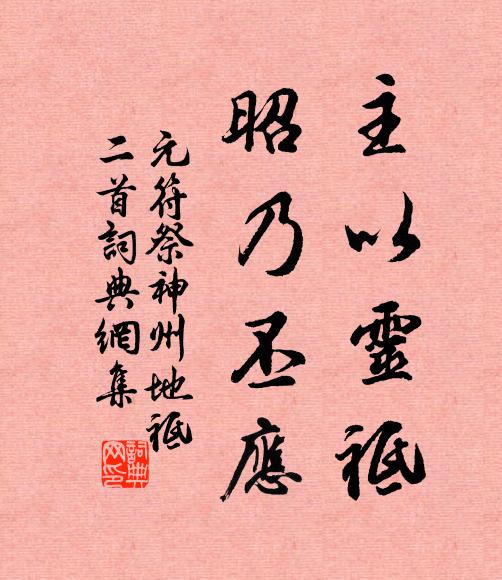 主以靈祗
昭乃丕應
元符祭神州地祗
二首詞典網集
詞典
网印